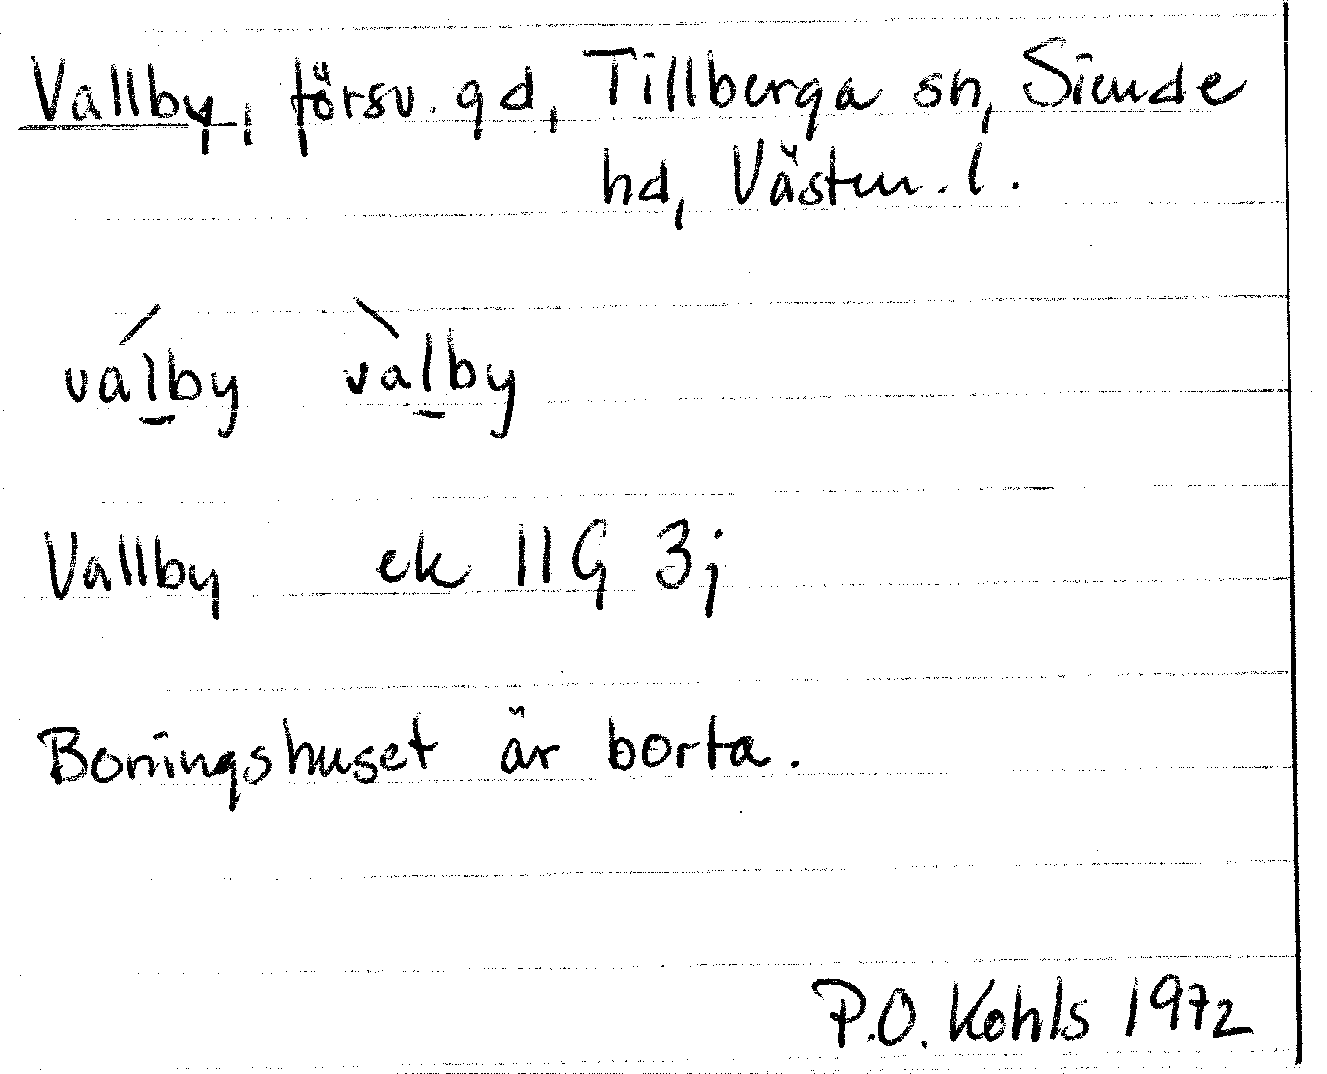 Vallby, försv. gd, Tillberga sn, Siende
hd, Västm. l.
válby vàlby
Vallby ek 11G 3j
Boningshuset är borta.
P.O. Kohls 1972